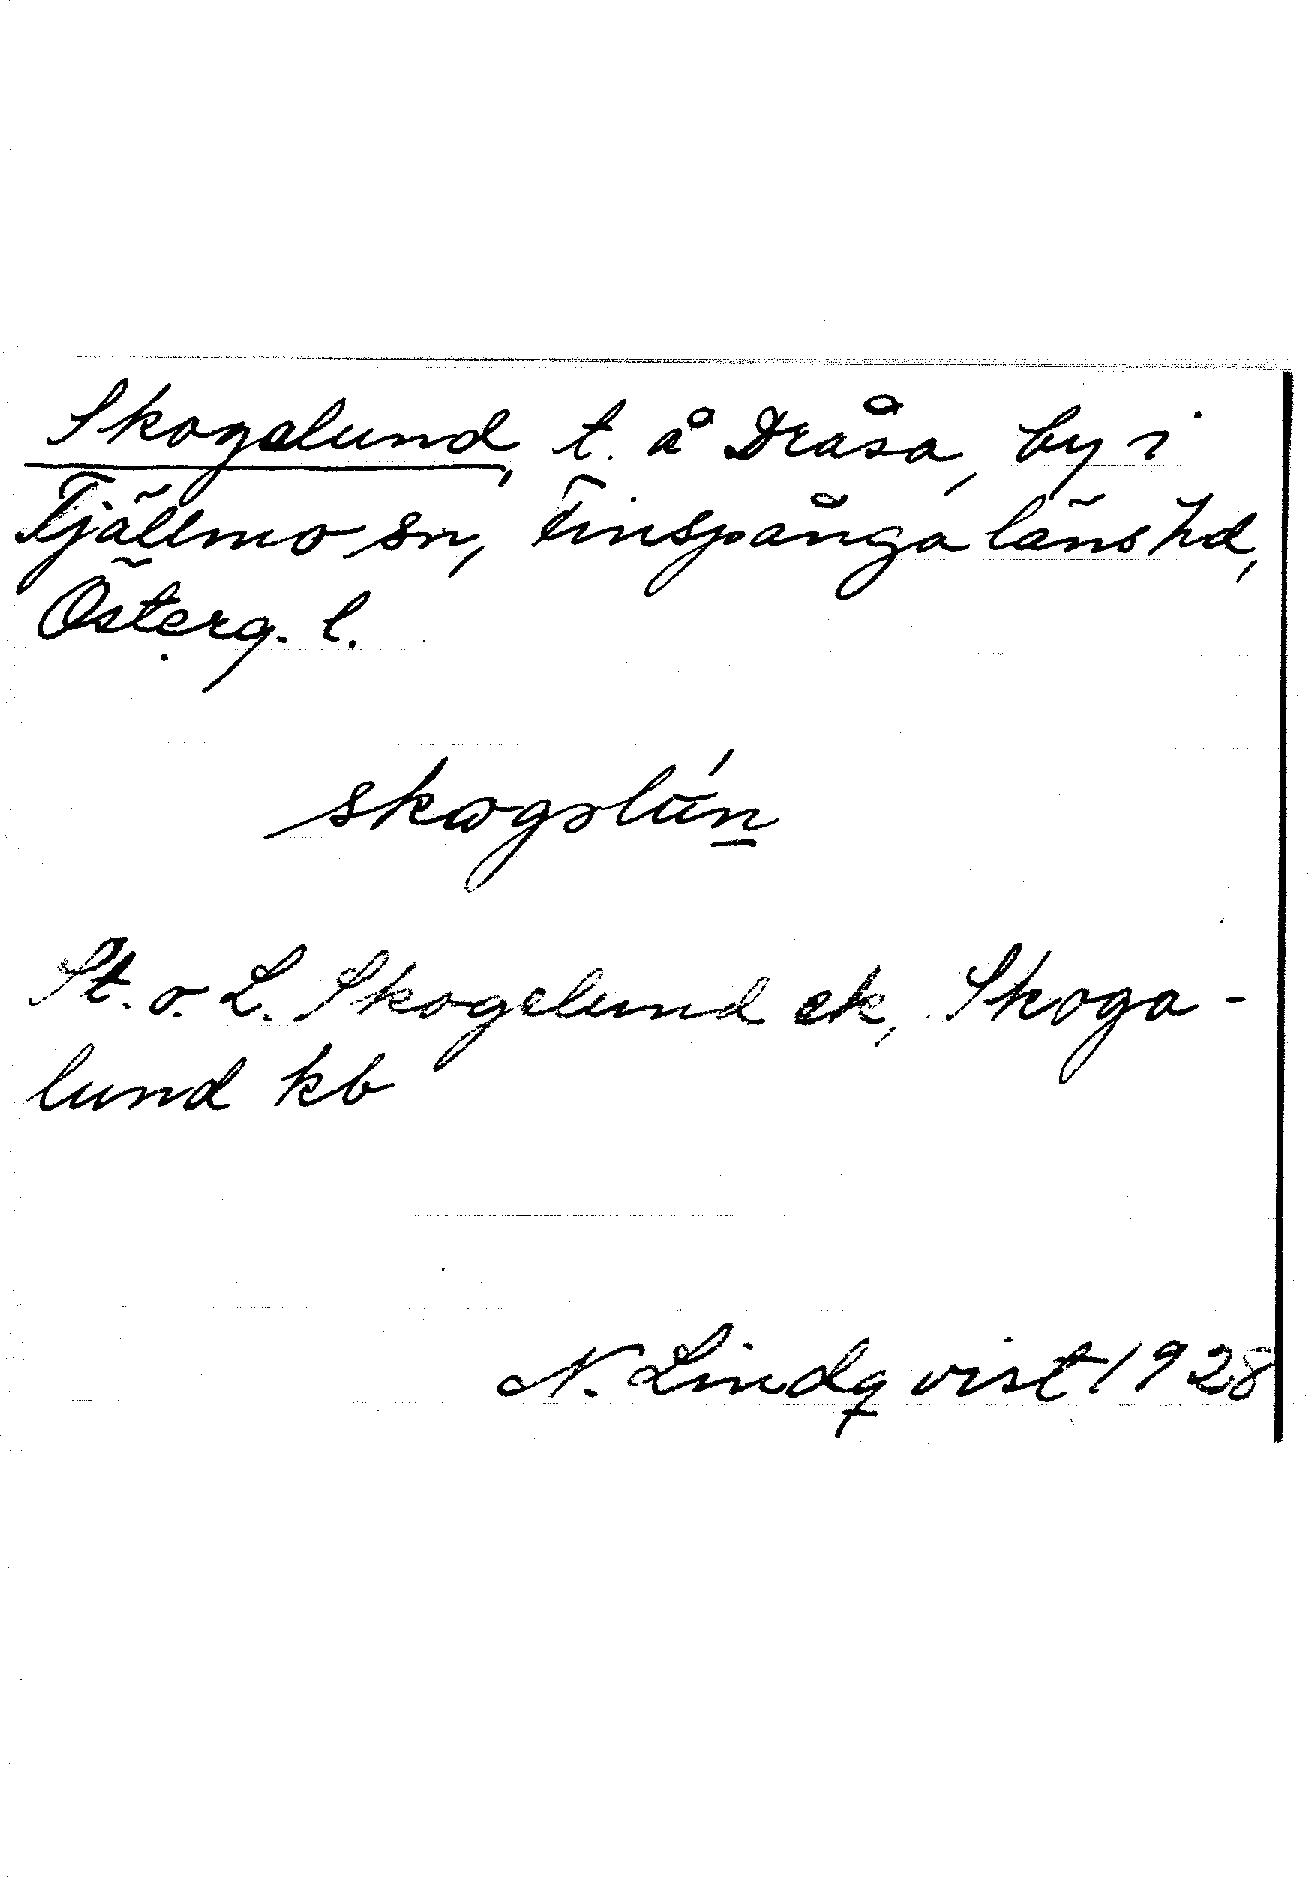 Skogalund, t. å Dråsa, by i
Tjällmo sn, Finspånga läns hd,
Österg. l.
skogəlún
St. o. L. Skogelund ek, Skoga-
lund kb
N. Lindqvist 1928